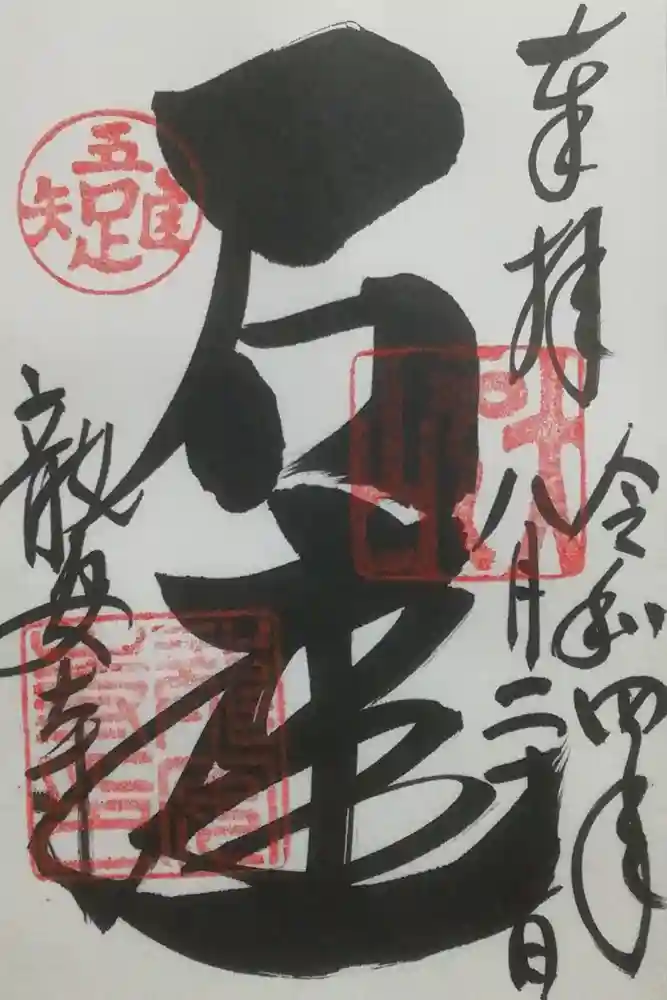 奉拝
令和四年
八月二十一日
石庭
吾唯足知
龍安寺